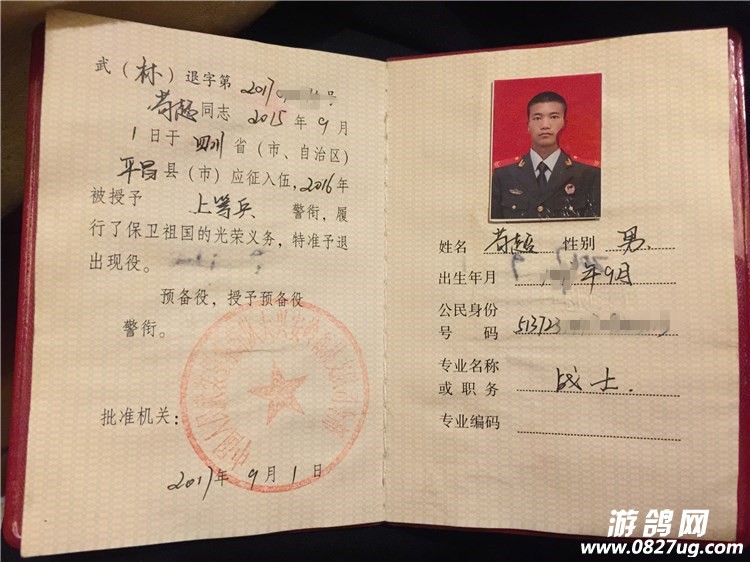 武（林）退字第2017号
苟超同志 2015年9月
1日于四川省（市、自治区）
平昌县（市）应征入伍，2016年
被授予 上等兵 警衔，履
行了保卫祖国的光荣义务，特准予退
出现役。
预备役，授予预备役
警衔。
批准机关：
2017年9月1日
姓名 苟超 性别 男
出生年月 年9月
公民身份
号码 513723
专业名称
或职务 战士
专业编码
游鸽网
www.0827ug.com